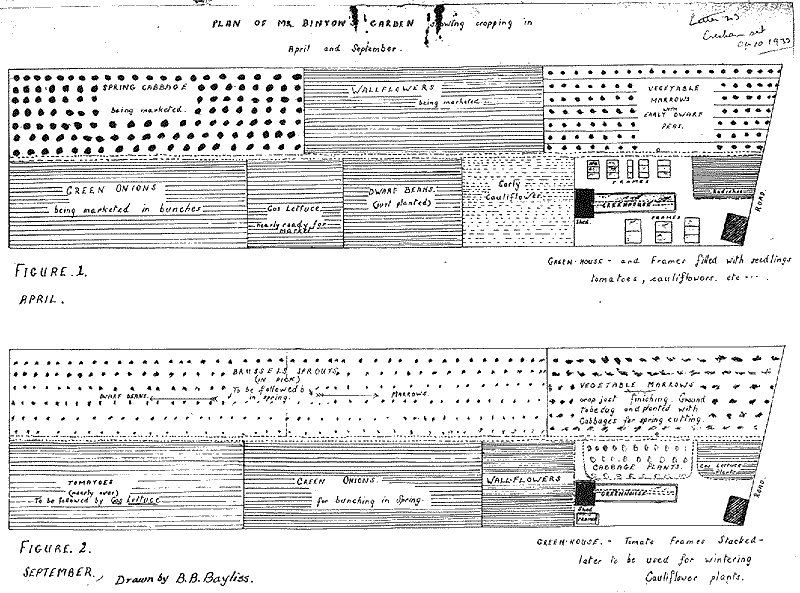 PLAN OF MR BINYON'S GARDEN showing cropping in
April and September.
SPRING CABBAGE
being marketed.
WALLFLOWERS
being marketed
VEGETABLE
MARROWS
with
EARLY DWARF
PEAS.
GREEN ONIONS
being marketed in bunches
Cos Lettuce
nearly ready for
market
DWARF BEANS.
(just planted)
Early
Cauliflower
FRAMES
GREENHOUSE
Shed.
FRAMES
Radishes
ROAD.
FIGURE.1.
APRIL.
GREEN-HOUSE - and Frames filled with seedlings
tomatoes, cauliflowers. etc ---.
BRUSSELS SPROUTS
(IN PICK)
To be followed b
in spring.
DWARF BEANS
MARROWS
VEGETABLE MARROWS
crop just finishing. Ground
To be dug and planted with
Cabbages for spring cutting.
TOMATOES
(nearly over)
To be followed by Cos Lettuce
GREEN ONIONS.
for bunching in Spring.
WALL-FLOWERS
CABBAGE PLANTS.
Cos Lettuce
GREENHOUSE
Shed
ROAD.
FIGURE. 2.
SEPTEMBER.
Drawn by B.B. Bayliss.
GREEN-HOUSE. - Tomato Frames Stacked-
later to be used for wintering
Cauliflower plants.